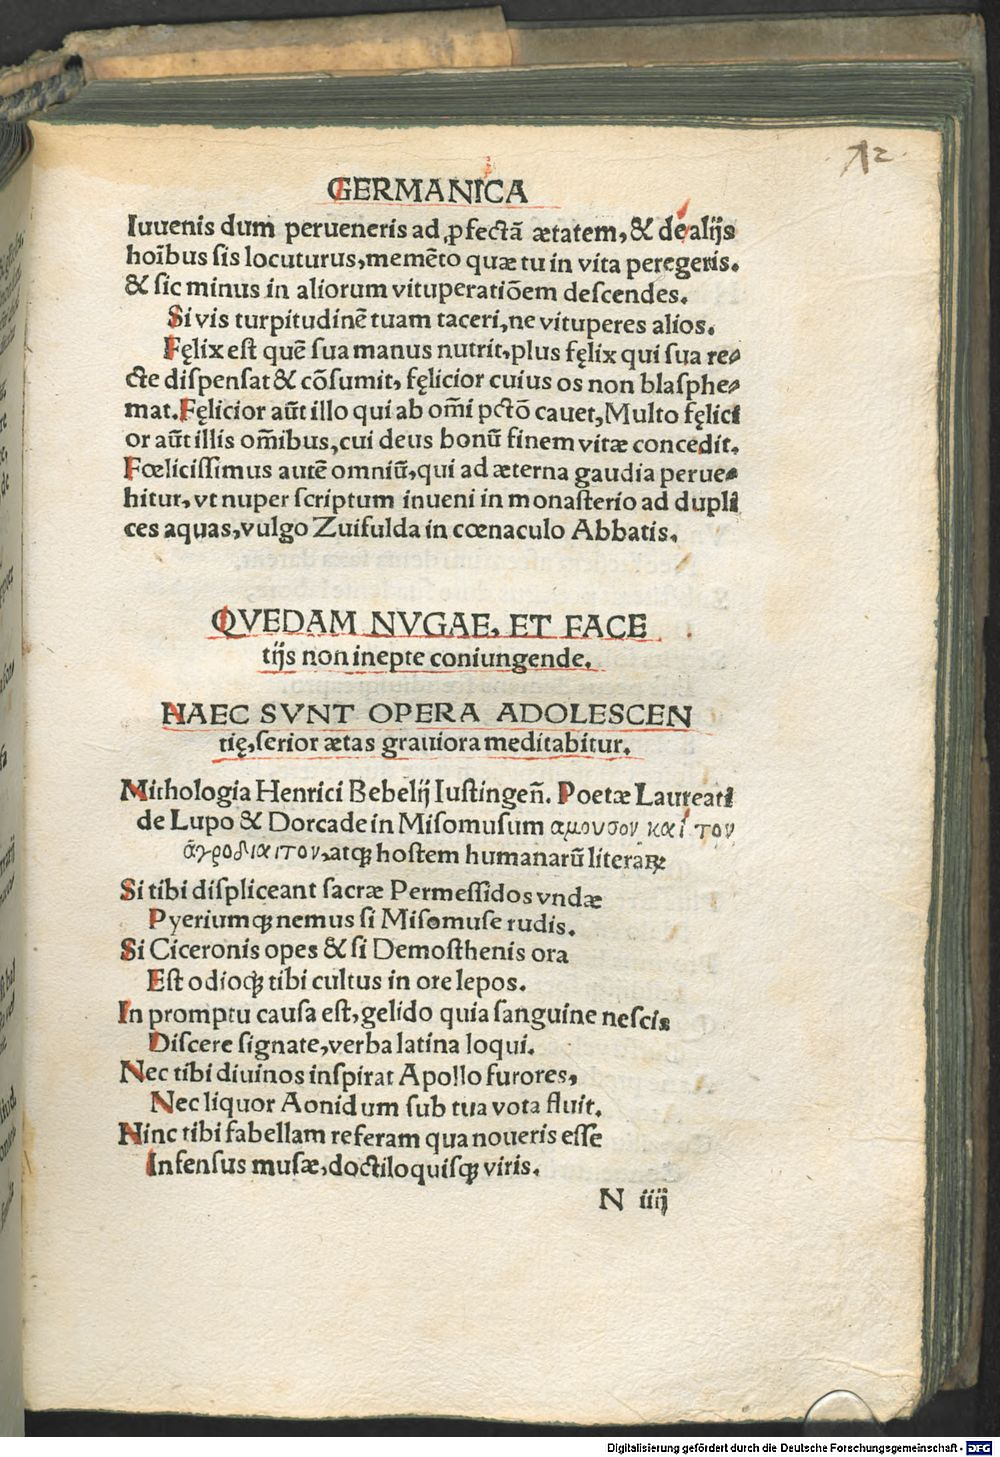 12.
GERMANICA
Iuuenis dum perueneris ad ꝑfectã ætatem, & de alijs
hoĩbus sis locuturus, memẽto quæ tu in vita peregeris.
& sic minus in aliorum vituperatiõem descendes.
Si vis turpitudinẽ tuam taceri, ne vituperes alios.
Fęlix est quẽ sua manus nutrit, plus fęlix qui sua re⸗
cte dispensat & cõsumit, fęlicior cuius os non blasphe⸗
mat. Fęlicior aũt illo qui ab om̃i pctõ cauet, Multo fęlici
or aũt illis om̃ibus, cui deus bonũ finem vitæ concedit.
Fœlicissimus autẽ omniũ, qui ad æterna gaudia perue⸗
hitur, vt nuper scriptum inueni in monasterio ad dupli
ces aquas, vulgo Zuifulda in cœnaculo Abbatis.
QVEDAM NVGAE, ET FACE
tijs non inepte coniungende.
HAEC SVNT OPERA ADOLESCEN
tię, serior ætas grauiora meditabitur.
Mithologia Henrici Bebelij Iustingeñ. Poetæ Laureati
de Lupo & Dorcade in Misomusum αμουσον και τον
ἀγροδιαιτον, atqꝫ hostem humanarũ literaꝝ
Si tibi displiceant sacræ Permessidos vndæ
Pyeriumqꝫ nemus si Misomuse rudis.
Si Ciceronis opes & si Demosthenis ora
Est odioqꝫ tibi cultus in ore lepos.
In promptu causa est, gelido quia sanguine nescis
Discere signate, verba latina loqui.
Nec tibi diuinos inspirat Apollo furores,
Nec liquor Aonidum sub tua vota fluit.
Ninc tibi fabellam referam qua noueris esse
Infensus musæ, doctiloquisqꝫ viris.
N iiij
Digitalisierung gefördert durch die Deutsche Forschungsgemeinschaft - DFG